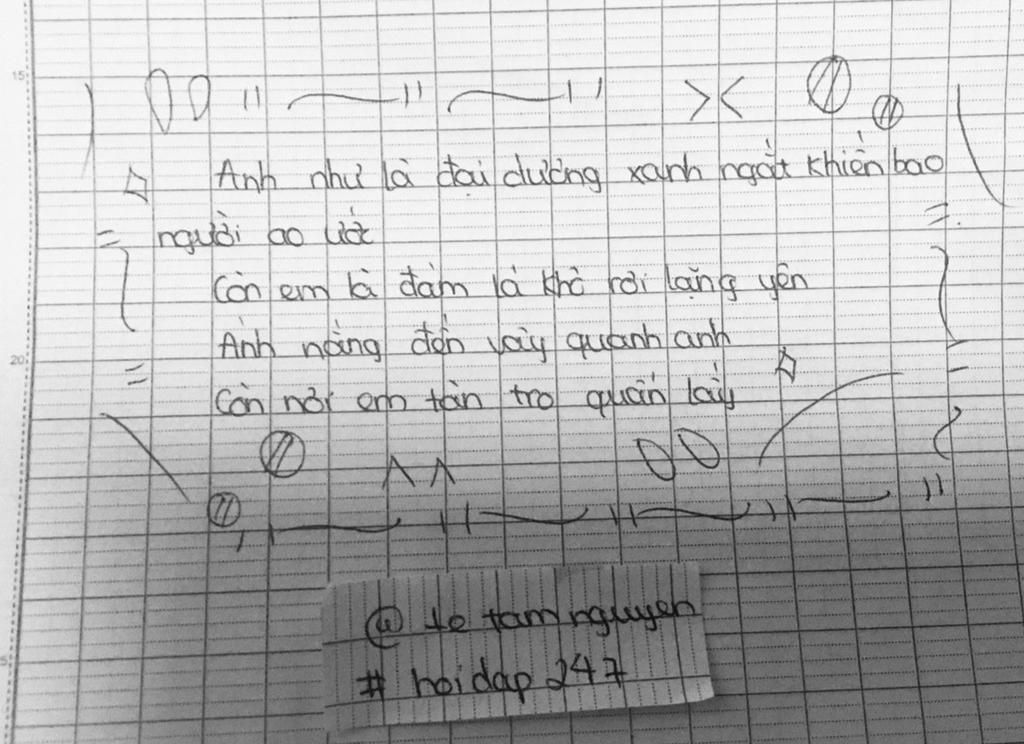 Anh như là đại dương xanh ngắt khiến bao
người ao ước
Còn em là đám lá khô rơi lặng yên
Ánh nắng đến vây quanh anh
Còn nơi em tàn tro quấn lấy
@ le tam nguyen
# hoidap 247
15
20
5